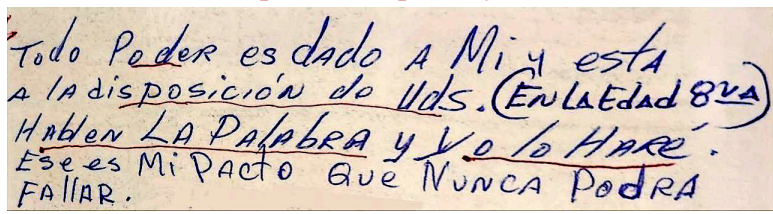 Todo Poder es dado A Mi y está
A lA disposición de Uds. (EN LA EdAd 8va)
HAblen LA PAlAbRA y Yo lo HARé.
Ese es Mi PActo Que NUNCA PodRA
FAllAR.